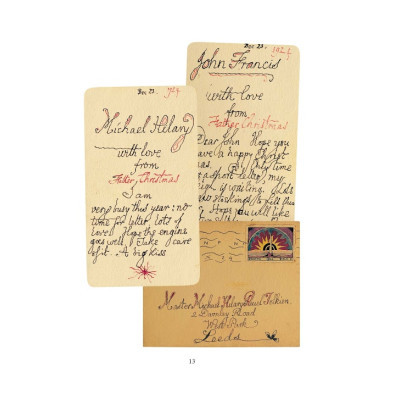 Dec 23. 1924
Michael Hilary
with love
from
Father Christmas
I am
very busy this year: no
time for letter. Lots of
love. Hope the engine
goes well. Take care
of it. A big kiss
Dec 23. 1924
John Francis
with love
from
Father Christmas
Dear John Hope you
have a happy Christ
mas. Only time
a short letter, my
sleigh is waiting. Lots
stockings to fill this
Hope you will like
Master Michael Hilary Reuel Tolkien
2 Darnley Road
West Park
Leeds
13